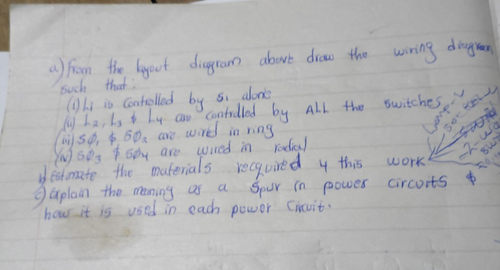 a) from the layout diagram above draw the wiring diagram
such that:
(i) L1 is controlled by S1 alone
(ii) L2, L3 & L4 are controlled by ALL the switches
(iii) SO1 & SO2 are wired in ring
(iv) SO3 & SO4 are wired in radial
b) Estimate the materials required 4 this work
c) explain the meaning as a spur in power circuits &
how it is used in each power circuit.